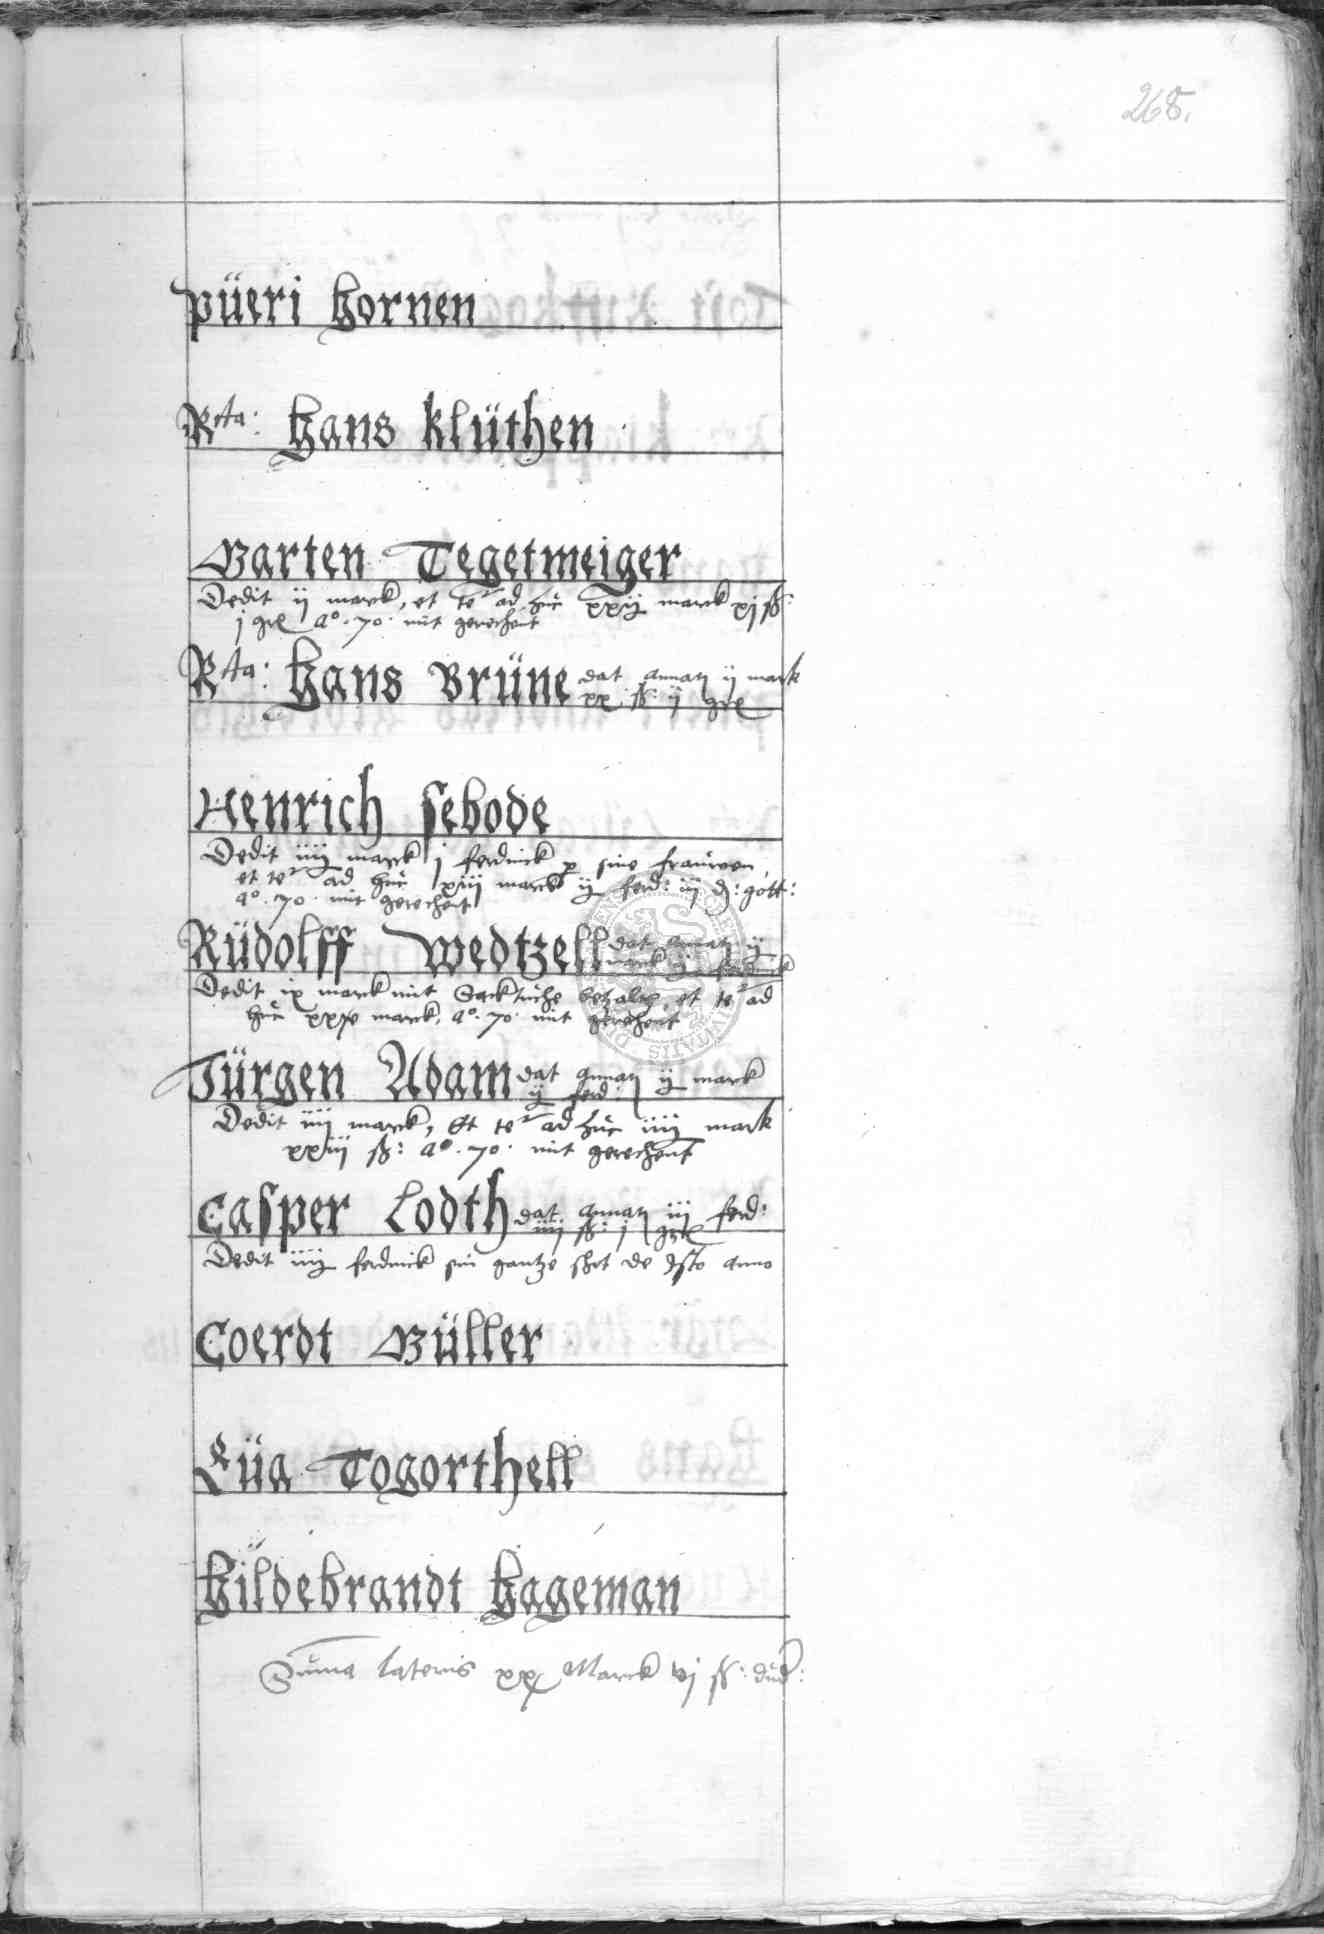 268.
Püeri Hornen
Rta: Hans Klüthen
Barten Tegetmeiger
Dedit ij marck, et te^r ad huc xxij marck xj ß:
j grl A°. 70. mit gerechent
Rta: Hans Brüne dat annatj ij mark
xx ß: ij grl
Henrich Sebode
Dedit iiij marck j ferdinck p sine frauwen
et te^r ad huc xiij marck ij ferd: iij d: gott:
A°. 70. mit gerechent
Rüdolff Wedtzell dat annatj ij
marck ferdinck
Dedit ix marck mit Sacktuche betzalt, et te^r ad
huc marck, A°. 70. mit gerechent
Jürgen Adam dat annatj ij marck
ij ferd:
Dedit iiij marck, et te^r ad huc iiij mark
xxiij ß: A°. 70. mit gerechent
Casper Lodth dat annatj iij ferd:
iiij ß: j grl
Dedit iiij ferdinck sin gantze shot de isto anno
Coerdt Büller
Togorthell
Hildebrandt Hageman
Suma lateris xx Marck vj ß: